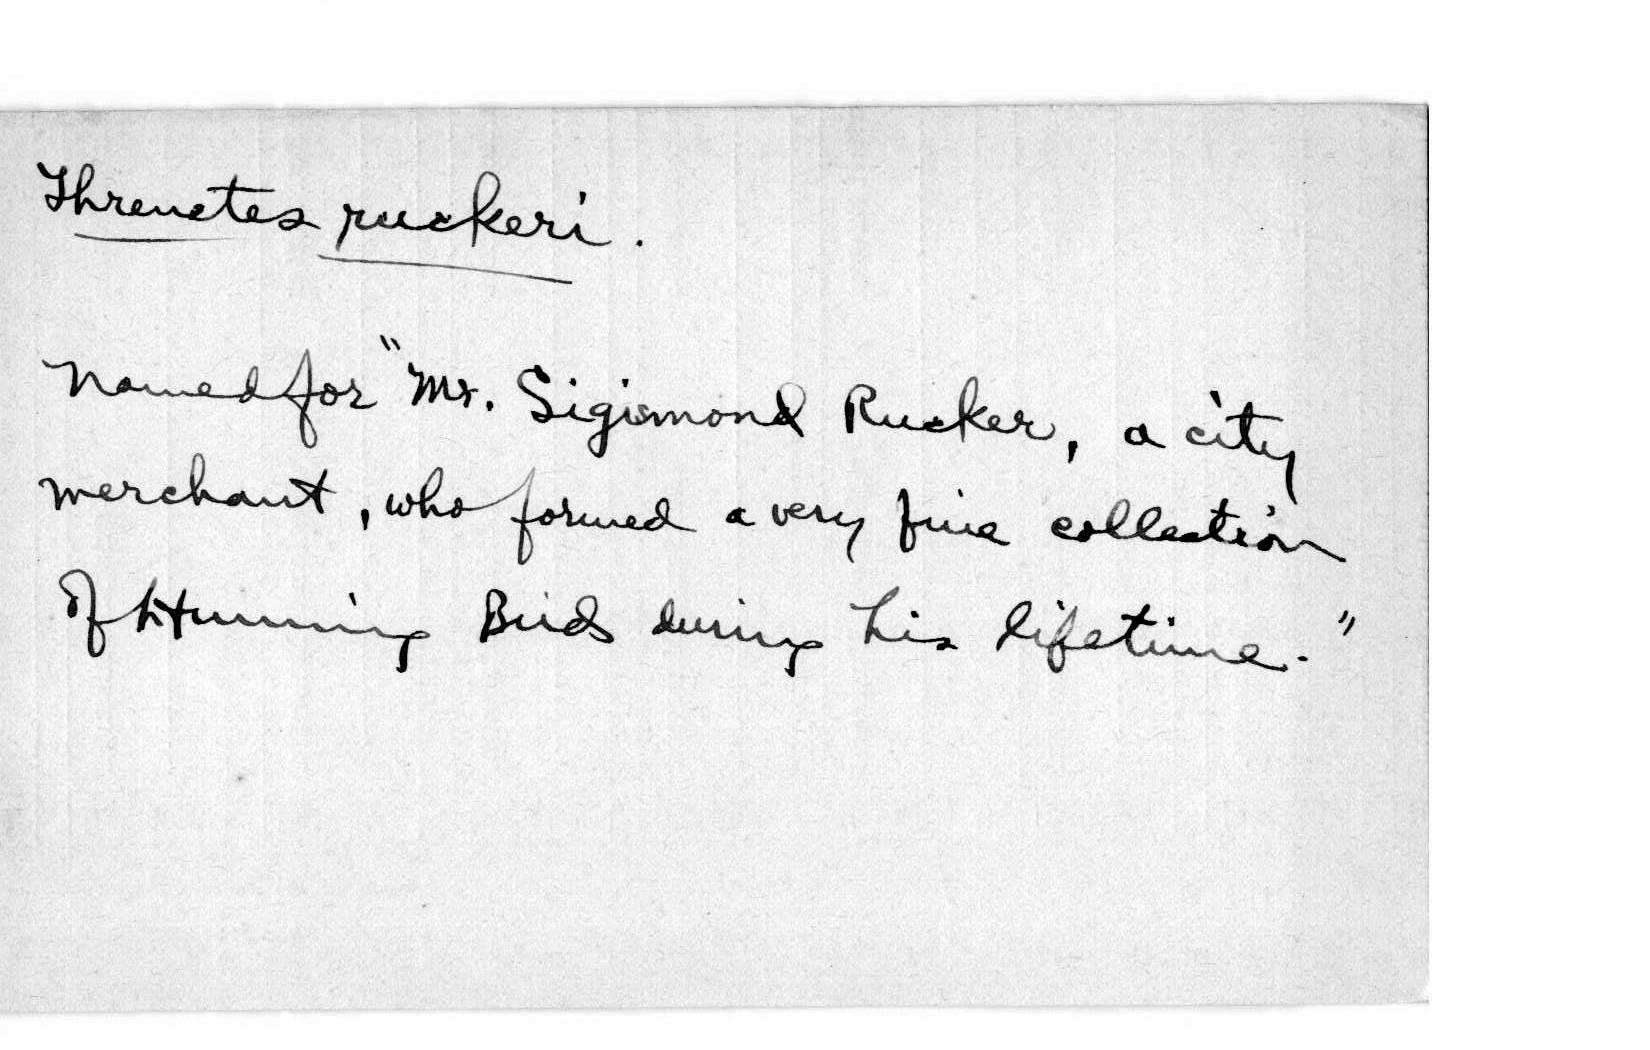 Threnetes ruckeri.
Named for "Mr. Sigismond Rucker, a city
merchant, who formed a very fine collection
of Humming Birds during his lifetime."